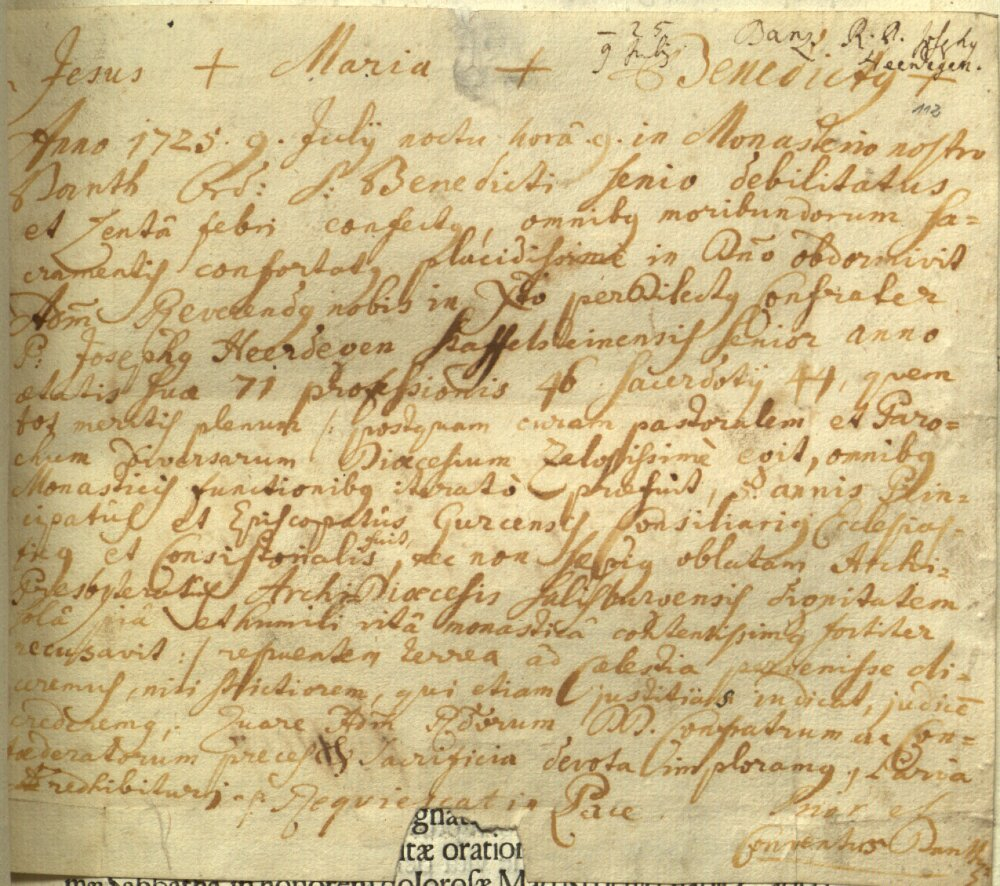 – 25
9 Julij
Banz. R. P. Josephy
Heerdegen.
Jesus + Maria + Benedicty +
112
Anno 1725. 9. Julij noctu horâ 9. in Monasterio nostro
Banth Ord: S: Benedicti senio debilitatus
et Lentâ febri confecty, omniby moribundorum Sa=
cramentis confortaty placidissime in Dño obdormivit
Adm̄ Reverendy nobis in Xto perdilecty Confrater
P: Josephy Heerdegen Staffelsteinensis Senior anno
ætatis suæ 71 professionis 46 Sacerdotij 44, quem
tot meritis plenum /: postquam curam pastoralem et Paro=
chum diversarum Diœcesium Zelosissimè egit, omniby
Monasticis functioniby iteratò præfuit, annis Prin=
cipatus et Episcopatus Gurcensis Consiliariy Ecclesias=
ticy et Consistorialis fuit, nec non sæpiy oblatam Archi=
Presbyteratus ArchiDiœcesis Salisburgensis dignitatem
solâ piâ et humili vitâ monasticâ contentissimy fortiter
recusavit :/ respuentem terrea ad Cælestia pervenisse di=
ceremus, nisi strictiorem, qui etiam justitias indicat, judicē
crederemy; Quare Adm̄ Rdorum DD. Confratrum ac Con=
fœderatorum preces & Sacrificia devota imploramy, Paria
redhibituri. Requiescat in Pace
Conventus Banth
gna
itæ oration
Sabbatha in honorem dolorosæ M